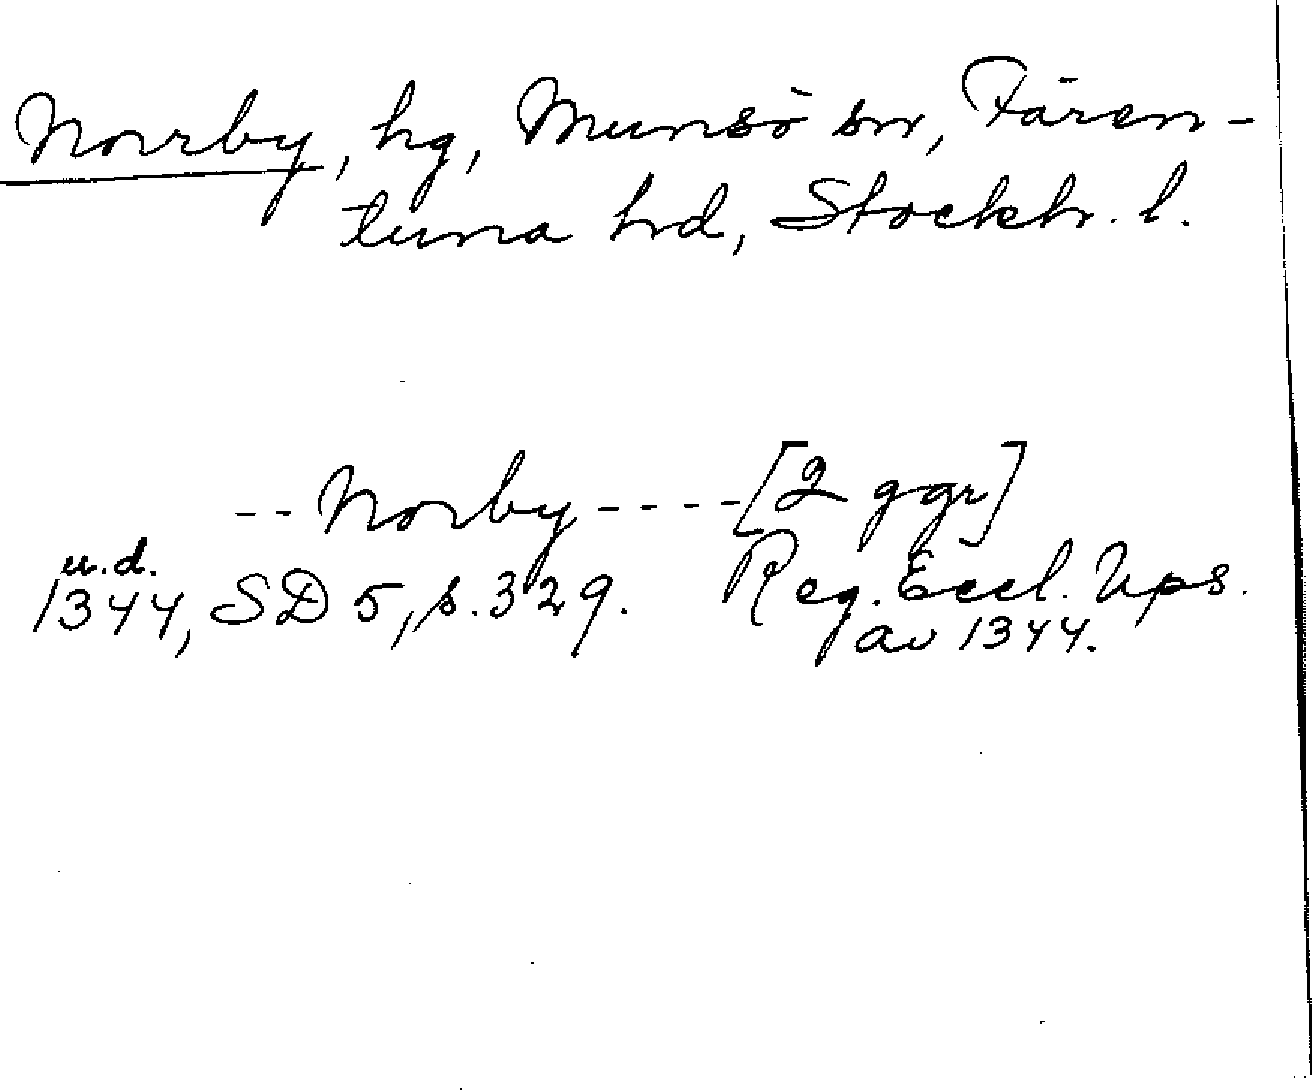 Norrby, hg, Munsö sn, Fären-
tuna hd, Stockh. l.
-- Norby ---- [2 ggr]
u.d.
1344, SD 5, s. 329. Reg. Eccl. Ups.
av 1344.